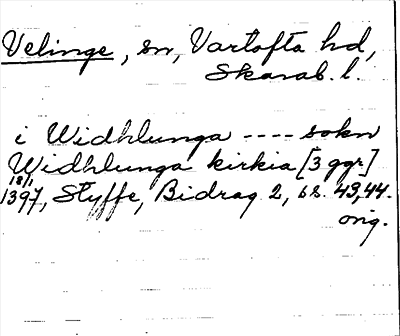 Velinge, sn, Vartofta hd,
Skarab. l.
i Widhlunga ---- sokn
Widhlunga kirkia [3 ggr]
18/1
1397, Styffe, Bidrag 2, ss. 43,44.
orig.